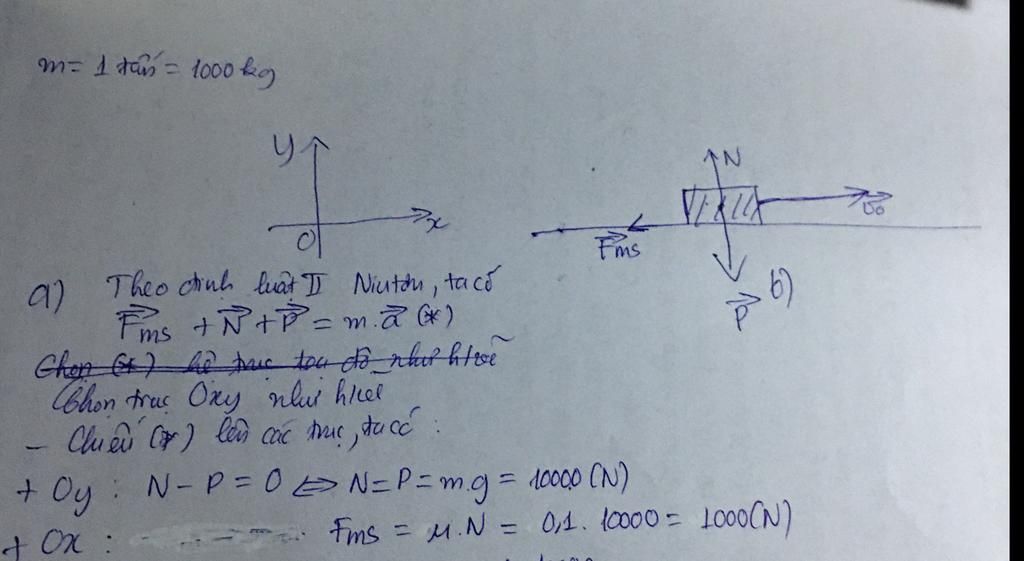 m = 1 tấn = 1000 kg
y
x
O
N
v₀
Fms
P
b)
a) Theo định luật II Niutơn, ta có
Fms + N + P = m.a (*)
Chọn (*) hệ trục toạ độ như h.vẽ
Chọn trục Oxy như h.vẽ
- Chiếu (*) lên các trục, ta có :
+ Oy : N - P = 0 ⇔ N = P = m.g = 10000 (N)
+ Ox : Fms = μ.N = 0,1 . 10000 = 1000 (N)